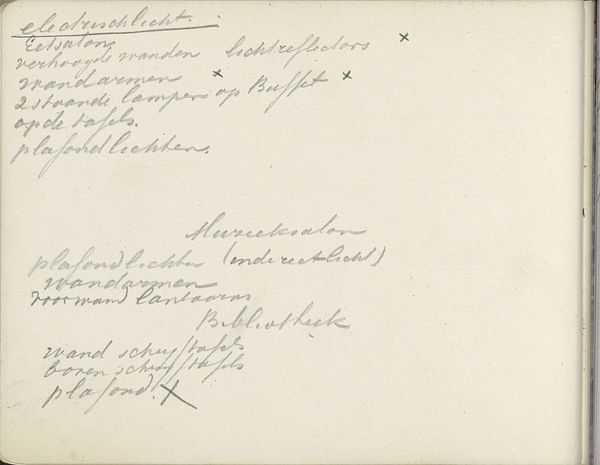 electrischlicht.
Eetsalon
verhoogde wanden lichtreflectors x
wandarmen x
2 staande lampen op Buffet x
op de tafels.
plafondlichten.
Muzieksalon
plafondlichten (indirect licht)
wandarmen
voorwand lantaarns
Bibliotheek
wand schrijftafels
boven schrijftafels
plafond. x